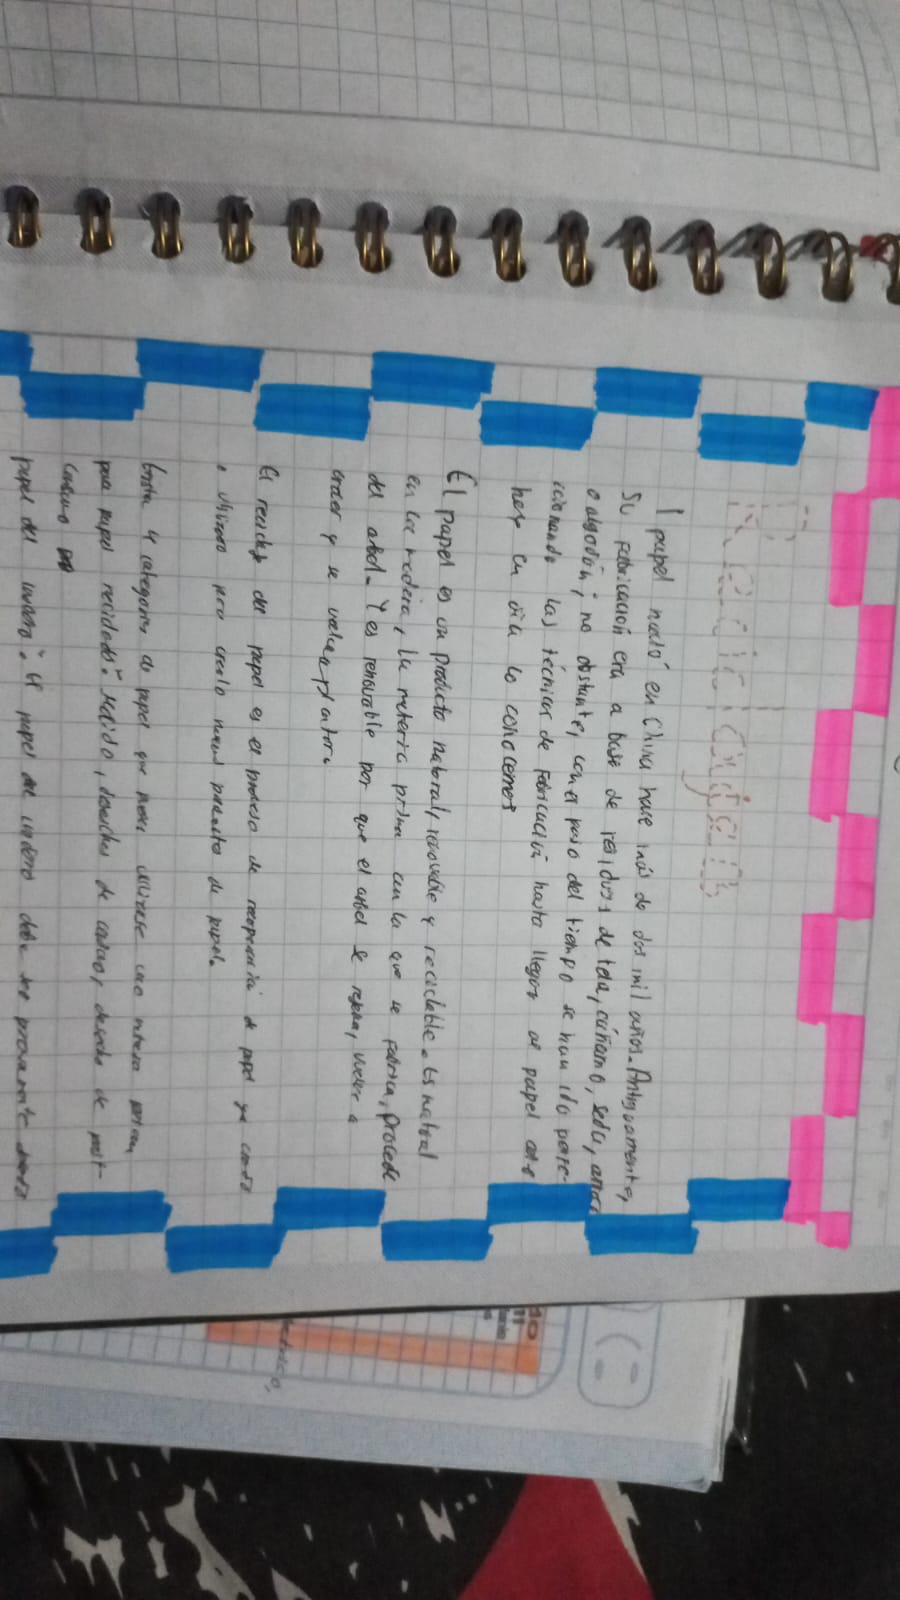 Reciclaje
l papel nació en China hace más de dos mil años. Antiguamente,
su fabricación era a base de residuos de tela, cáñamo, seda, arroz
o algodón; no obstante, con el paso del tiempo se han ido perfe-
ccionando las técnicas de fabricación hasta llegar al papel que
hoy en día lo conocemos
El papel es un producto natural, renovable y reciclable. Es natural
en la madera, la materia prima con la que se fabrica, procede
del arbol. Y es renovable por que el arbol se regenera, vuelve a
crecer y se vuelve plantar.
El reciclaje del papel es el proceso de recuperación de papel ya
utilizado para crearlo nuevos de papel.
4 categorias de papel que puede utilizarse como materia
para papel reciclado: Molido, desechos de, desecho de post-
consumo
papel del inodoro. El papel de inodoro debe ser